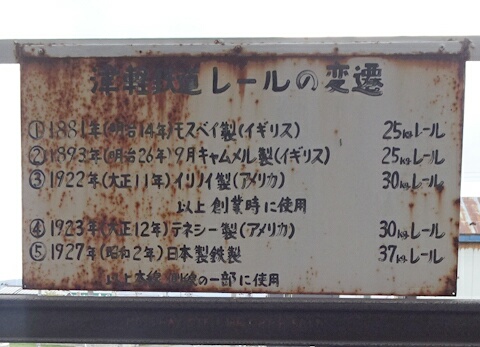 津軽鉄道レールの変遷
①1881年(明治14年)モスベイ製(イギリス) 25kgレール
②1893年(明治26年)9月キャムメル製(イギリス) 25kgレール
③1922年(大正11年)イリノイ製(アメリカ) 30kgレール
以上創業時に使用
④1923年(大正12年)テネシー製(アメリカ) 30kgレール
⑤1927年(昭和2年)日本製鉄製 37kgレール
以上本線側線の一部に使用